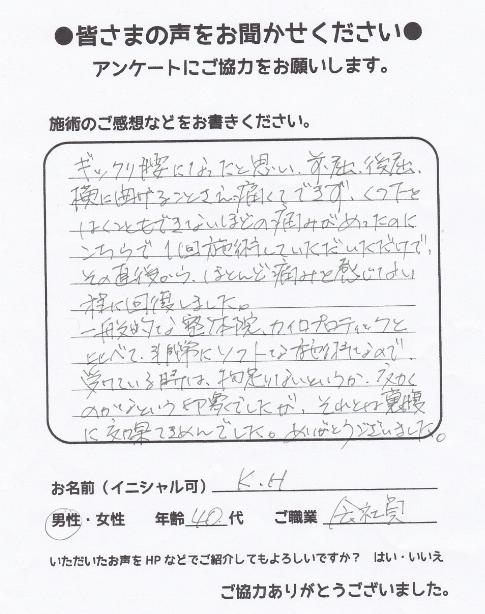 ●皆さまの声をお聞かせください●
アンケートにご協力をお願いします。
施術のご感想などをお書きください。
ギックリ腰になったと思い、前屈、後屈、
横に曲げることさえ痛くてできず、くつ下を
はくこともできないほどの痛みがあったのに
こちらで1回施術していただいただけで、
その直後から、ほとんど痛みを感じない
程に回復しました。
一般的な整体院、カイロプロティックと
比べて、非常にソフトな施術なので、
受けている時は、物足りないというか、効く
のかなという印象でしたが、それとは裏腹
に効果てきめんでした。ありがとうございました。
お名前（イニシャル可） K.H
男性・女性 年齢 40 代 ご職業 会社員
いただいたお声をHPなどでご紹介してもよろしいですか？ はい・いいえ
ご協力ありがとうございました。